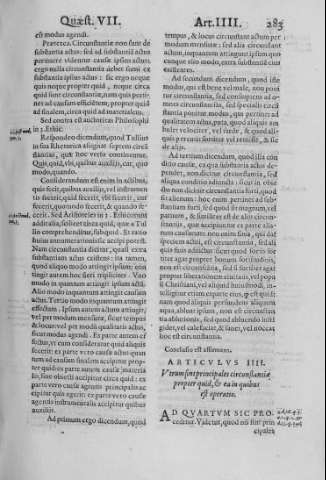 Quæst. VII.
Art. IIII. 283
est modus agendi.
Præterea. Circunstantiæ non sunt de
substantia actus: sed ad substantiã actus
pertinere videntur causæ ipsius actus.
ergo nulla circunstantia debet sumi ex
causa ipsius actus: sic ergo neque
quis neque propter quid, neque circa
quid sunt circunstantiæ, nam quis perti-
net ad causam efficientem, propter quid
ad finalem, circa quid ad materialem.
Sed contra est auctoritas Philosophi
in 3. Ethic.
Respondeo dicendum, quod Tullius
in sua Rhetorica assignat septem circũ
stantias, quæ hoc versu continentur.
Quis, quid, vbi, quibus auxiliis, cur, quo
modo, quando.
Considerandum est enim in actibus,
quis fecit, quibus auxiliis, vel instrumen
tis fecerit, quid fecerit, vbi fecerit, cur
fecerit, quomodo fecerit, & quando fe
cerit. Sed Aristoteles in 3. Ethicorum
addit alia, scilicet circa quid, quæ a Tul
lio comprehenditur, sub quid. Et ratio
huius annumerationis accipi potest.
Nam circunstantia dicitur, quasi extra
substantiam actus existens: ita tamen,
quod aliquo modo attingit ipsum; con
tingit autem hoc fieri tripliciter. Vno
modo in quantum attingit ipsum actũ.
Alio modo inquantum attingit causam
actus. Tertio modo inquantum attingit
effectum. Ipsum autem actum attingit,
vel per modum mensuræ, sicut tempus,
& locus: vel per modũ qualitatis actus,
sicut modus agendi. Ex parte autem ef
fectus, vt cum consideratur quid aliquis
fecerit: ex parte vero causæ actus quan
tum ad causam finalem accipitur prop
ter quid: ex parte autem causæ materia
lis, siue obiecti accipitur circa quid: ex
parte vero causæ agentis principalis ac
cipitur quis egerit: ex parte vero causæ
agentis instrumentalis accipitur quibus
auxiliis.
Ad primum ergo dicendum, quod
tempus, & locus circunstant actum per
modum mensuræ: sed alia circunstant
actum, inquantum attingunt ipsum quo
cunque alio modo, extra substantiã eius
existentia.
Ad secundum dicendum, quod iste
modus, qui est bene vel male, non poni
tur circunstantia, sed consequitur ad om
nes circunstantias, sed specialis circũ
stantia ponitur modus, qui pertinet ad
qualitatem actus, puta, quod aliquis am
bulet velociter, vel tarde, & quod ali-
quis percutit fortiter, vel remisse, & sic
de aliis.
Ad tertium dicendum, quod illa con
ditio causæ, ex qua substantia actus de-
pendet, non dicitur circunstantia, sed ali
qua conditio adiuncta: sicut in obie
cto non dicitur circunstantia furti, quod
sit alienum: hoc enim pertinet ad sub-
stantiam furti, sed quod sit magnum, vel
paruum; & similiter est de aliis circun-
stantiis, quæ accipiuntur ex parte alia-
rum causarum. Non enim finis, qui dat
speciem actus, est circunstantia, sed ali
quis finis adiunctus: sicut quod fortis for
titer agat propter bonum fortitudinis,
non est circunstantia, sed si fortiter agat
propter liberationem ciuitatis, vel popu
li Christiani, vel aliquid huiusmodi, in-
telligitur etiam ex parte eius, quod est quid:
nam quod aliquis perfundens aliquem
aqua, abluat ipsum, non est circunstantia
ablutionis, sed quod abluendo infrigi-
det, vel calefaciat, & sanet, vel noceat,
hoc est circunstantia.
Conclusio est affirmans.
ARTICVLVS IIII.
Vtrum sint principales circunstantiæ
propter quid, & ea in quibus
est operatio.
AD QVARTVM SIC PRO
ceditur. Videtur, quod nõ sint prin
cipales